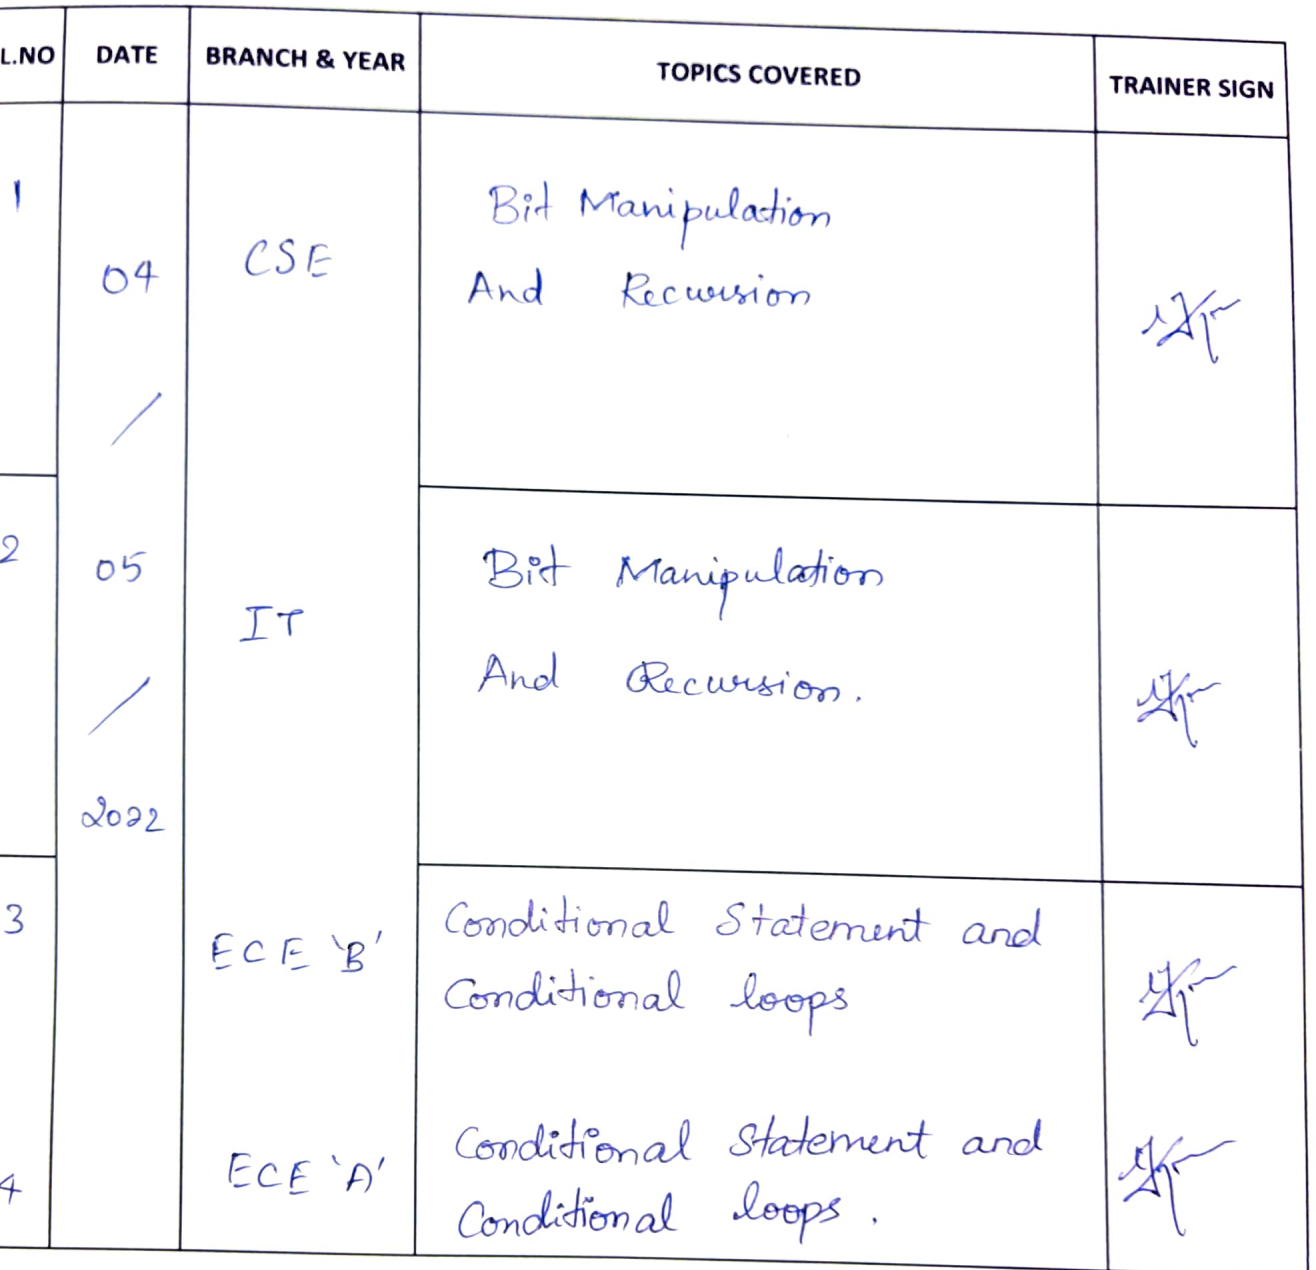 L.NO DATE BRANCH & YEAR TOPICS COVERED TRAINER SIGN
1
04
CSE
Bit Manipulation
And Recursion
/
2
05
IT
Bit Manipulation
And Recursion.
/
2022
3
ECE 'B'
Conditional Statement and
Conditional loops
4
ECE 'A'
Conditional Statement and
Conditional loops.